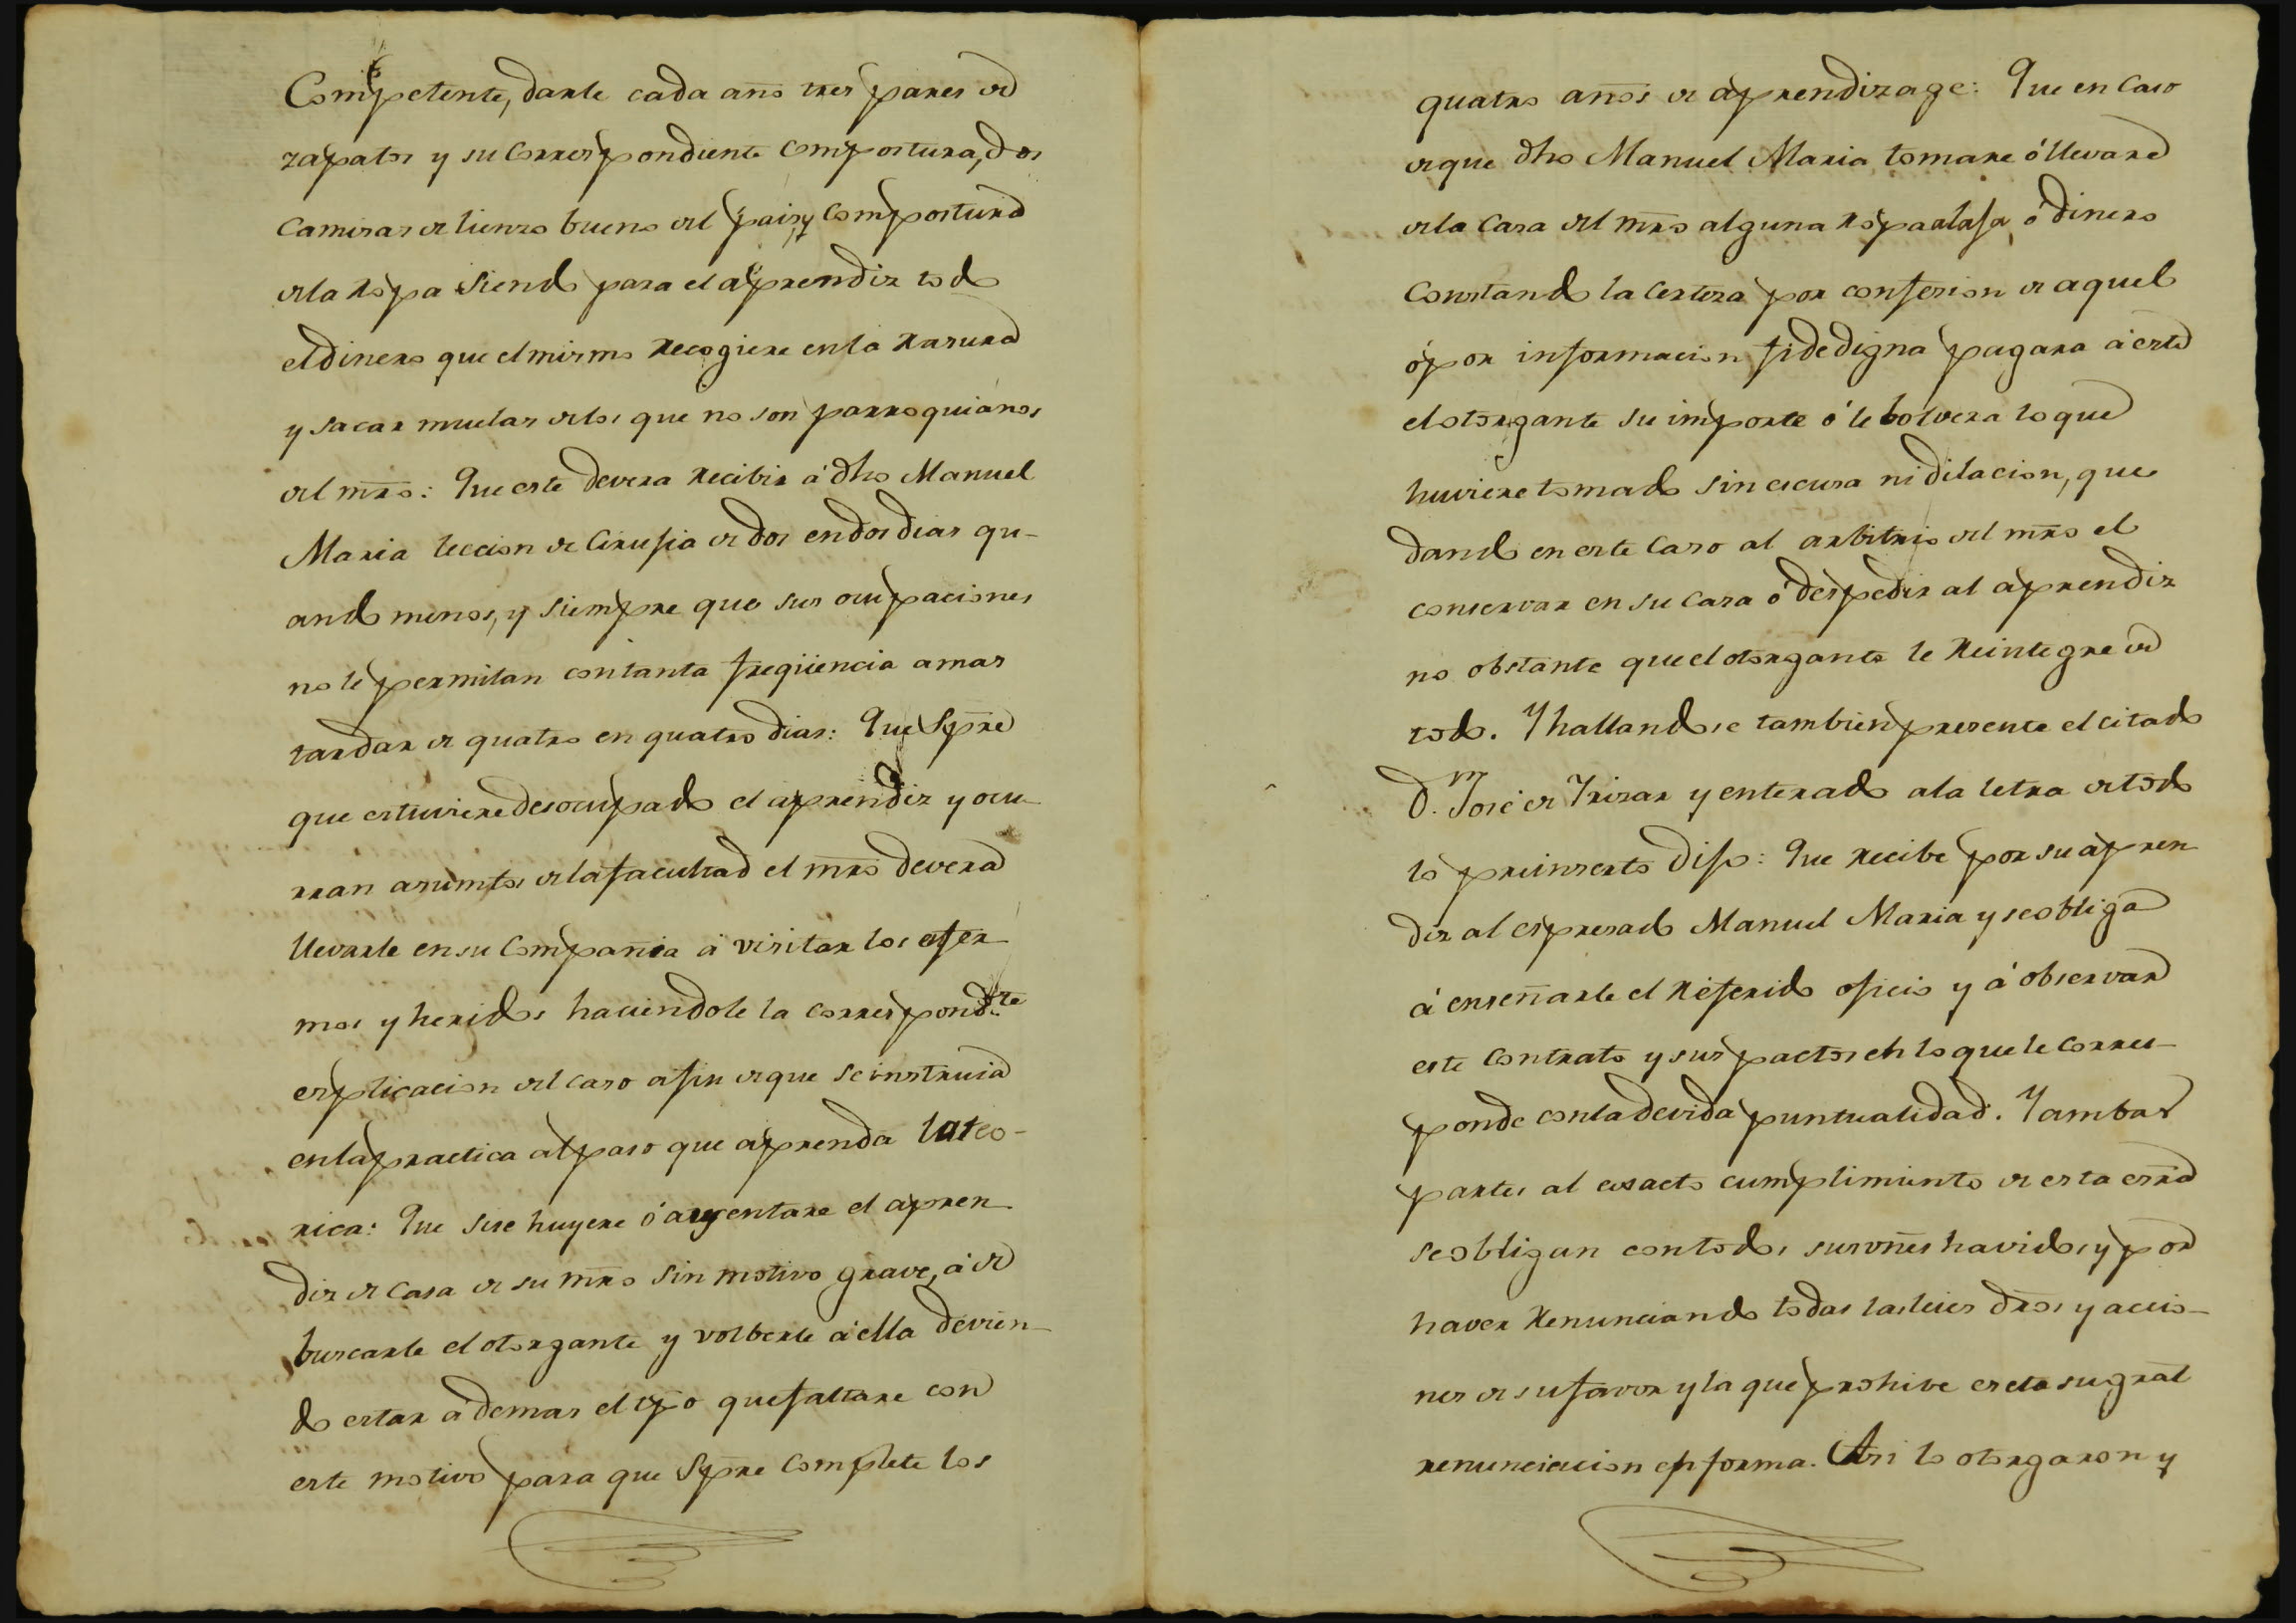 Competente, darle cada año tres pares de
zapatos y su correspondiente compostura, dos
camisas de lienzo bueno del pais, y compostura
de la ropa siendo para el aprendiz todo
el dinero que el mismo recogiere en la rasura
y sacar muelas de los que no son parroquianos
del mrõ: Que este devera recibir á dho Manuel
Maria leccion de Cirujia de dos en dos dias qu-
ando menos, y siempre que sus ocupaciones
no le permitan con tanta freqüencia a mas
tardar de quatro en quatro dias: Que Spre
que estuviere desocupado el aprendiz y ocu-
rran asumtos de la facultad el mrõ devera
llevarle en su compañia á visitar los enfer
mos y heridos haciendole la correspondte
esplicacion del caso a fin de que se instruia
en la practica al paso que aprenda la teo-
rica: Que si se huyere ó ausentare el apren
diz de casa de su mrõ sin motivo grave, á de
buscarle el otorgante y volberle á ella devien-
do estar ademas el tpo que faltare con
este motivo para que Spre complete los
quatro años de aprendizage: Que en caso
de que dho Manuel Maria tomare ó llevare
de la casa del mrõ alguna ropa alaja, ó dinero
constando la certeza por confesion de aquel
ó por informacion fidedigna pagara á este
el otorgante su importe ó le bolvera lo que
huviere tomado sin escusa ni dilacion, que
dando en este caso al arbitrio del mrõ el
conservar en su casa ó despedir al aprendiz
no obstante que el otorgante le reintegre de
todo. Y hallandose tambien presente el citado
D.n José de Irizar y enterado a la letra de todo
lo preinserto dijo: Que recibe por su apren
diz al espresado Manuel Maria y se obliga
á enseñarle el referido oficio y á observar
este contrato y sus pactos en lo que le corres-
ponde con la devida puntualidad. Y ambas
partes al exacto cumplimiento de esta esrã
se obligan con todos sus vñes havidos y por
haver renunciando todas las leies drõs y accio-
nes de su favor y la que prohive esceto su gral
renunciacion en forma. Asi lo otorgaron y